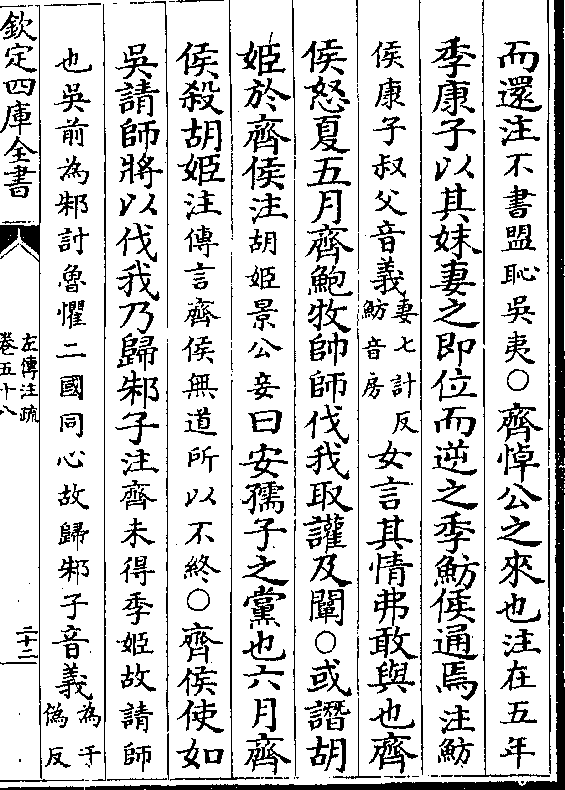 而還注不書盟恥吳夷○齊悼公之來也注在五年
季康子以其妹妻之即位而逆之季魴侯通焉注魴
侯康子叔父音義妻七計反魴音房女言其情弗敢與也齊
侯怒夏五月齊鮑牧帥師伐我取讙及闡○或譖胡
姬於齊侯注胡姬景公妾曰安孺子之黨也六月齊
侯殺胡姬注傳言齊侯無道所以不終○齊侯使如
吳請師將以伐我乃歸邾子注齊未得季姬故請師
也吳前為邾討魯懼二國同心故歸邾子音義為于偽反
欽定四庫全書
左傳注疏
卷五十八
二十二